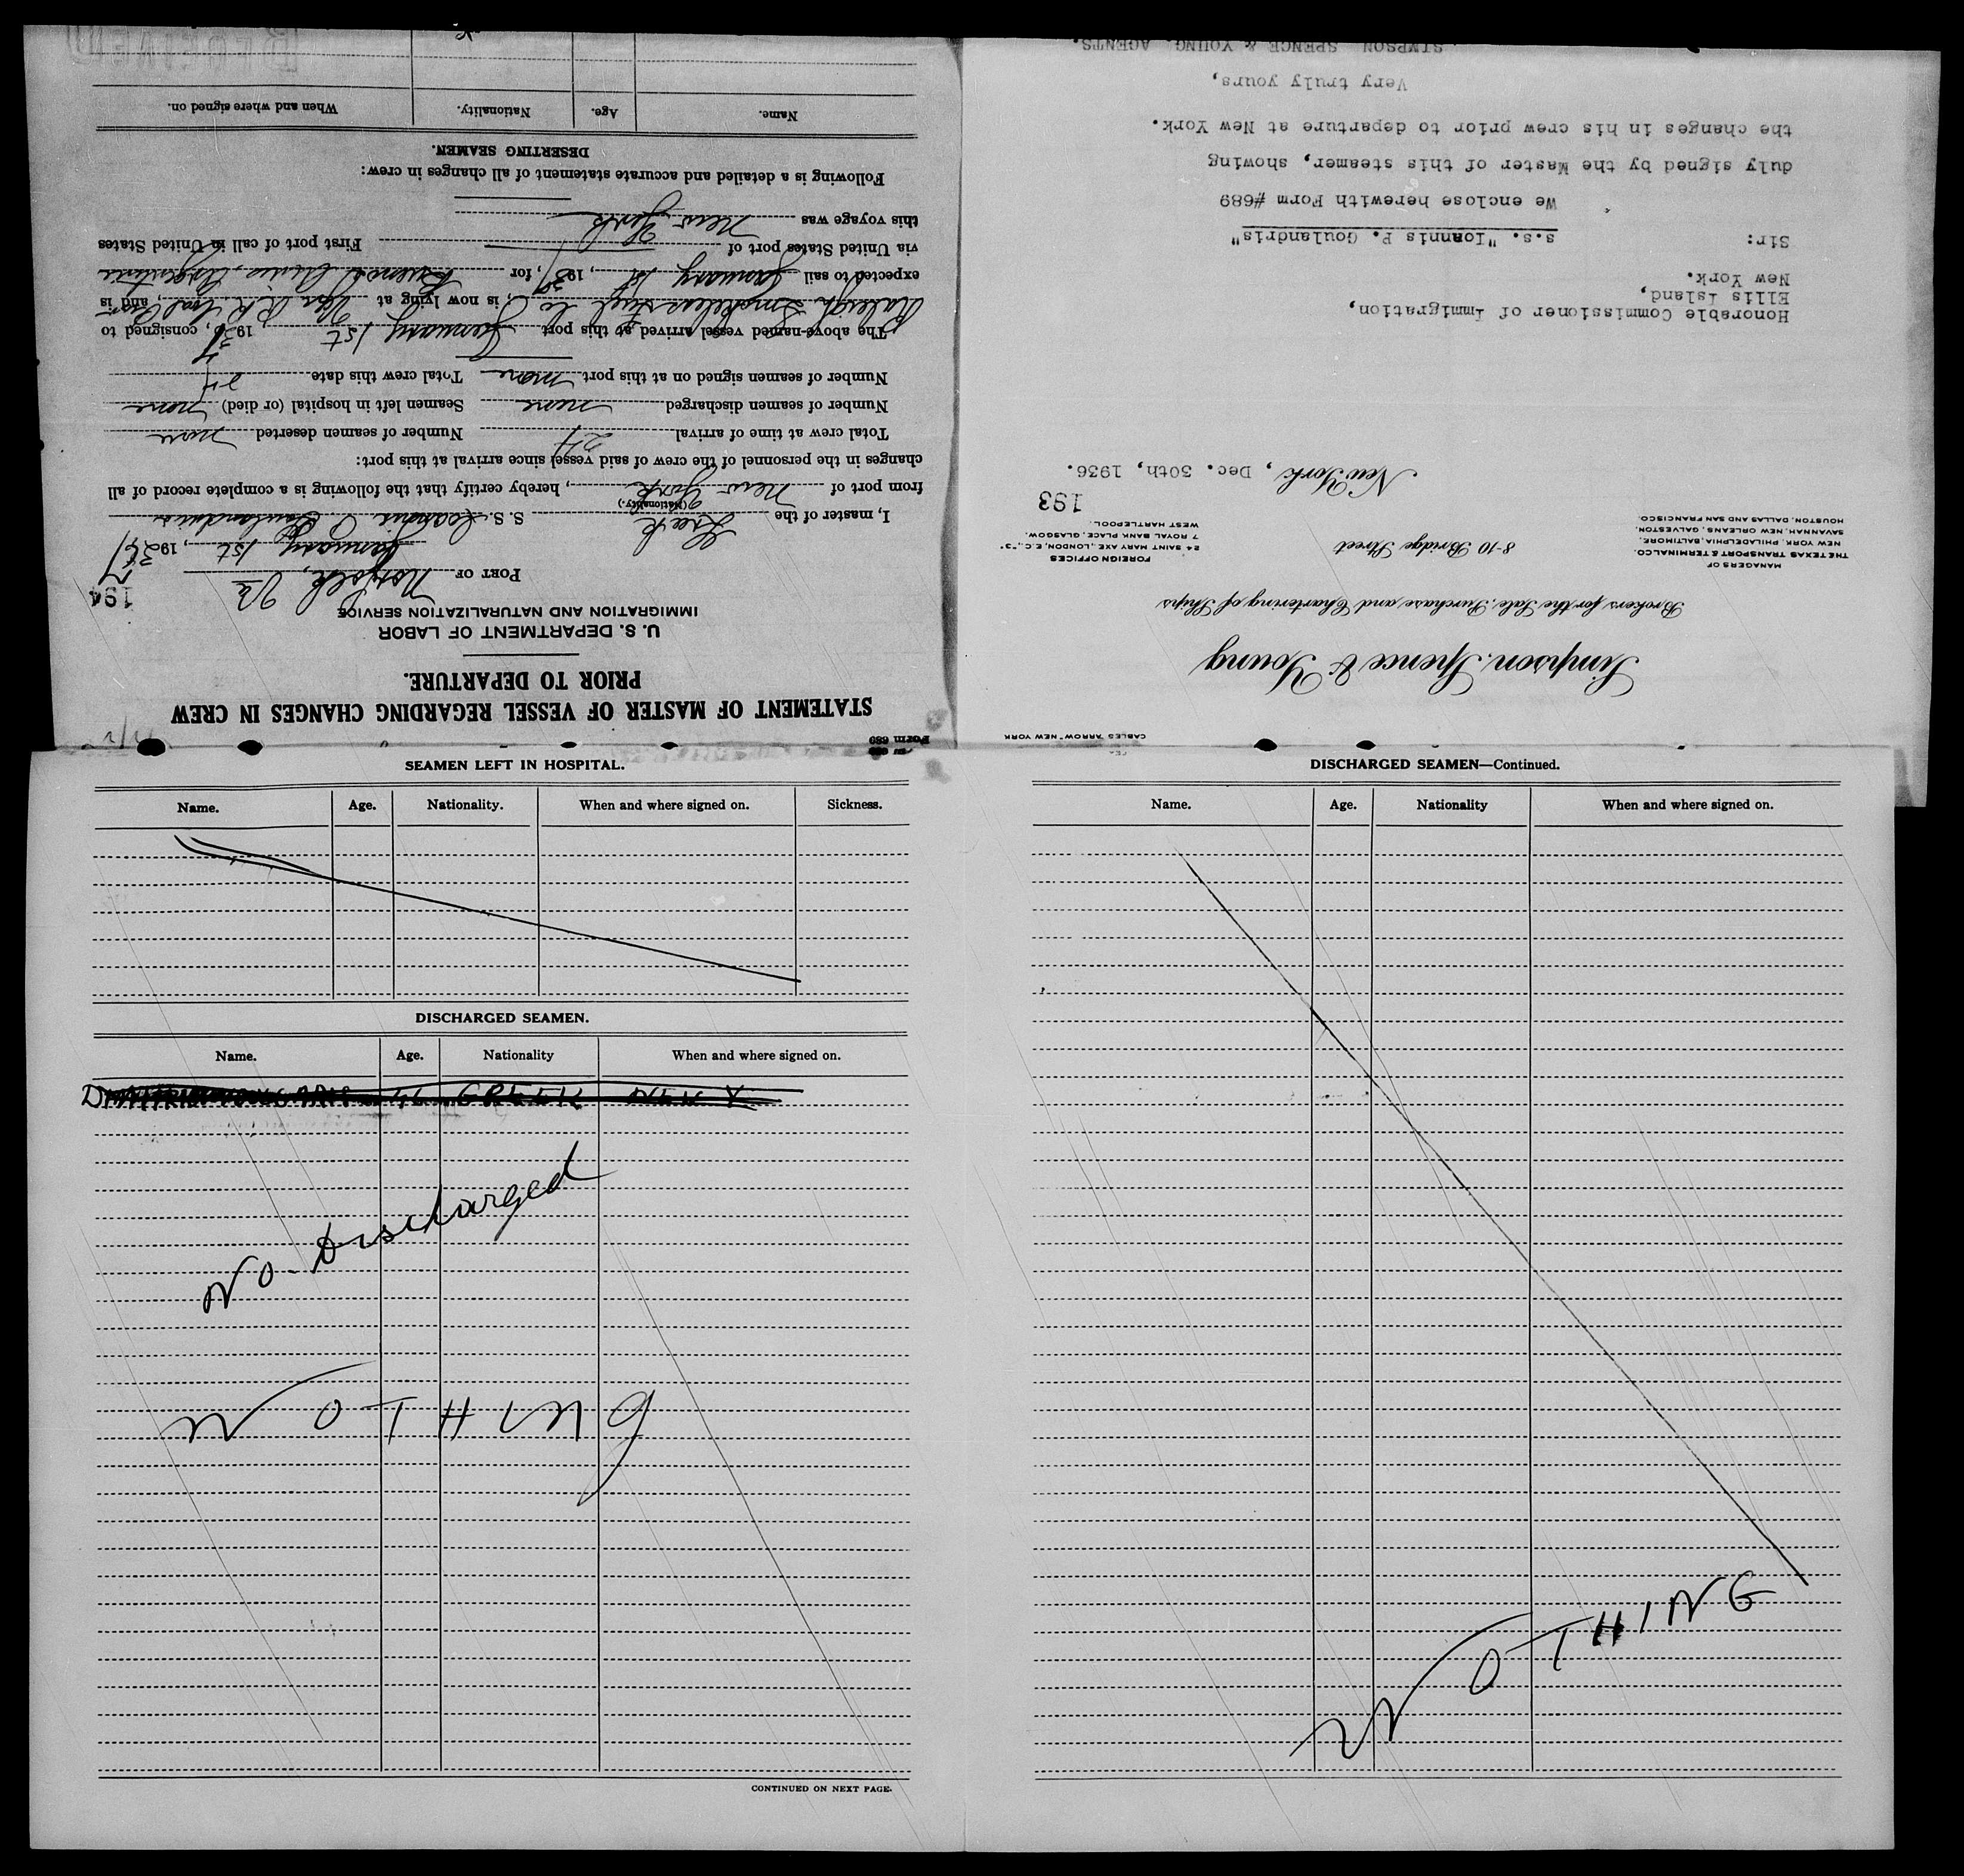 Form 689
STATEMENT OF MASTER OF VESSEL REGARDING CHANGES IN CREW
PRIOR TO DEPARTURE.
U. S. DEPARTMENT OF LABOR
IMMIGRATION AND NATURALIZATION SERVICE
194
PORT OF Norfolk, Va
January 1st, 193
I, master of the Greek S. S. Ioannis P. Goulandris
(Nationality)
from port of New York, hereby certify that the following is a complete record of all
changes in the personnel of the crew of said vessel since arrival at this port:
Total crew at time of arrival 27 Number of seamen deserted none
Number of seamen discharged none Seamen left in hospital (or died) none
Number of seamen signed on at this port none Total crew this date 27
The above-named vessel arrived at this port January 1st 193, consigned to
Raleigh Smokeless Fuel Co, is now lying at, and is
expected to sail January 1st, 193, for Buenos Aires, Argentine
via United States port of First port of call in United States
this voyage was New York
Following is a detailed and accurate statement of all changes in crew:
DESERTING SEAMEN.
Name. Age. Nationality. When and where signed on.
RECEIVED
CABLES "ARROW" NEW YORK
Simpson, Spence & Young
Brokers for the Sale, Purchase and Chartering of Ships
MANAGERS OF
THE TEXAS TRANSPORT & TERMINAL CO.
NEW YORK, PHILADELPHIA, BALTIMORE,
SAVANNAH, NEW ORLEANS, GALVESTON,
HOUSTON, DALLAS AND SAN FRANCISCO.
8-10 Bridge Street
FOREIGN OFFICES
24 SAINT MARY AXE, LONDON, E.C., "3"
7 ROYAL BANK PLACE, GLASGOW.
WEST HARTLEPOOL.
193
New York, Dec. 30th, 1936.
Honorable Commissioner of Immigration,
Ellis Island,
New York.
Sir:
s.s. "Ioannis P. Goulandris"
We enclose herewith Form #689
duly signed by the Master of this steamer, showing
the changes in his crew prior to departure at New York.
Very truly yours,
SIMPSON SPENCE & YOUNG, AGENTS.
SEAMEN LEFT IN HOSPITAL.
Name. Age. Nationality. When and where signed on. Sickness.
DISCHARGED SEAMEN.
Name. Age. Nationality When and where signed on.
GREEK NEW Y
No Discharged
NOTHING
CONTINUED ON NEXT PAGE.
DISCHARGED SEAMEN—Continued.
Name. Age. Nationality When and where signed on.
NOTHING